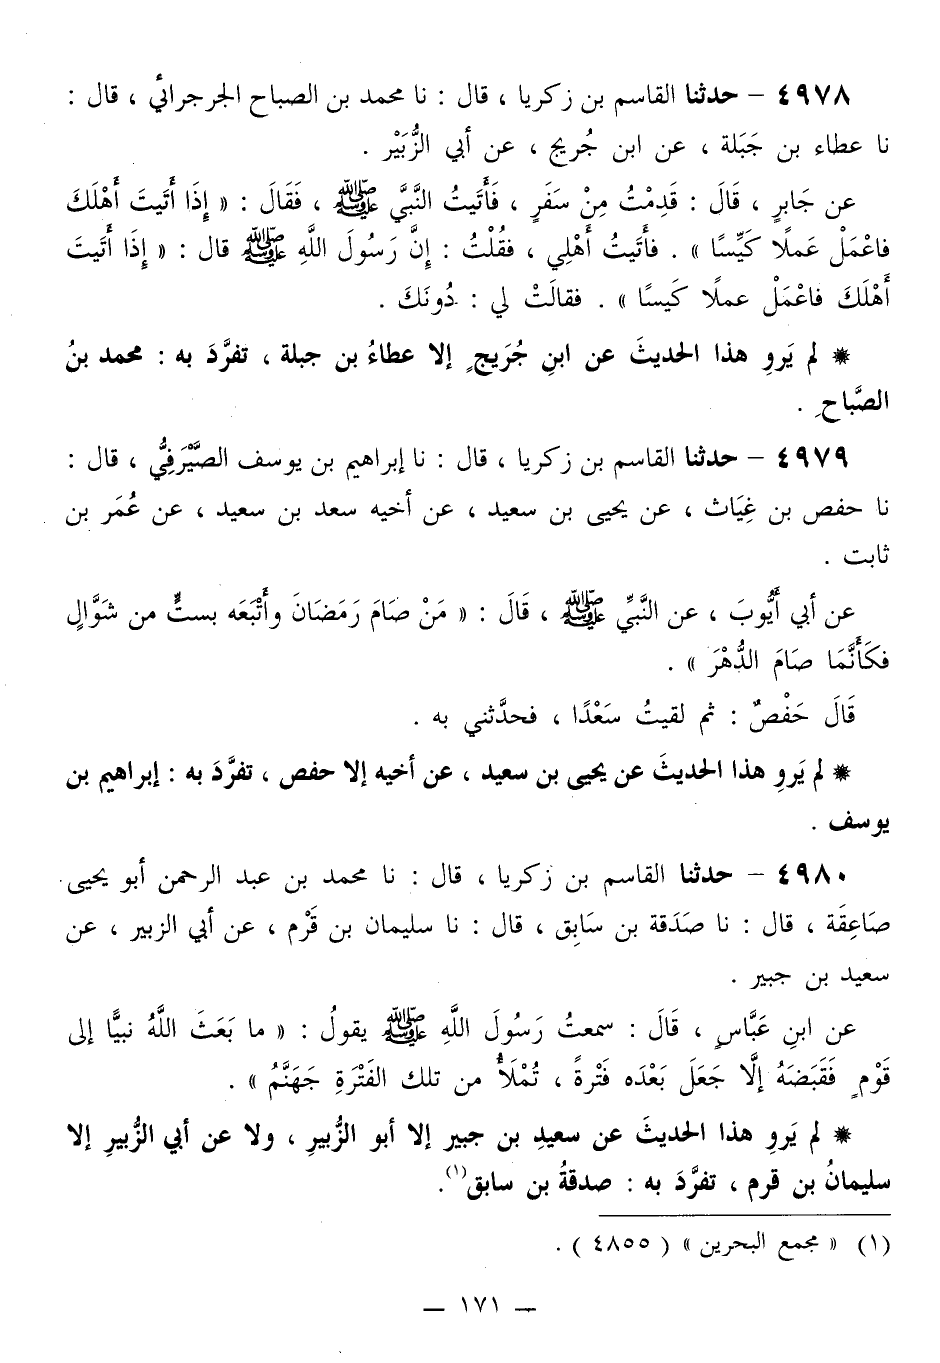 ٤٩٧٨ – حدثنا القاسم بن زكريا ، قال : نا محمد بن الصباح الجرجرائي ، قال :
نا عطاء بن جَبَلة ، عن ابن جُريج ، عن أبي الزُّبَيْر .
عن جابرٍ ، قَالَ : قَدِمْتُ مِنْ سَفَرٍ ، فَأَتَيتُ النَّبيَّ ﷺ ، فَقَالَ : « إِذَا أَتَيتَ أَهْلَكَ
فاعْمَلْ عَملًا كَيِّسًا » . فأتَيتُ أَهْلِي ، فقُلْتُ : إِنَّ رَسُولَ اللَّهِ ﷺ قال : « إِذَا أَتَيتَ
أَهْلَكَ فاعْمَلْ عملًا كَيسًا » . فقالَتْ لي : دُونَكَ .
* لم يَروِ هذا الحديثَ عن ابنِ جُرَيجٍ إلا عطاءُ بن جبلة ، تفرَّدَ به : محمد بنُ
الصَّباحِ .
٤٩٧٩ – حدثنا القاسم بن زكريا ، قال : نا إبراهيم بن يوسف الصَّيْرَفِيُّ ، قال :
نا حفص بن غِيَاث ، عن يحيى بن سعيد ، عن أخيه سعد بن سعيد ، عن عُمَر بن
ثابت .
عن أبي أَيُّوبَ ، عن النَّبيِّ ﷺ ، قَالَ : « مَنْ صَامَ رَمَضَانَ وأَتْبَعَه بستٍّ من شَوَّالٍ
فكَأَنَّمَا صَامَ الدُّهْرَ » .
قَالَ حَفْصٌ : ثم لقيتُ سَعْدًا ، فحدَّثني به .
* لم يَروِ هذا الحديثَ عن يحيى بن سعيد ، عن أخيه إلا حفص ، تفرَّدَ به : إبراهيم بن
يوسف .
٤٩٨٠ – حدثنا القاسم بن زكريا ، قال : نا محمد بن عبد الرحمن أبو يحيى
صَاعِقَة ، قال : نا صَدَقة بن سَابِق ، قال : نا سليمان بن قَرْم ، عن أبي الزبير ، عن
سعيد بن جبير .
عن ابنِ عَبَّاسٍ ، قَالَ : سمعتُ رَسُولَ اللَّهِ ﷺ يقولُ : « ما بَعَثَ اللَّهُ نبيًّا إلى
قَوْمٍ فَقَبَضَهُ إلَّا جَعَلَ بَعْدَه فَتْرةً ، تُمْلَأُ من تلك الفَتْرَةِ جَهَنَّمُ » .
* لم يَروِ هذا الحديثَ عن سعيدِ بن جبير إلا أبو الزُّبيرِ ، ولا عن أبي الزُّبيرِ إلا
سليمانُ بن قرم ، تفرَّدَ به : صدقةُ بن سابق(١).
(١) « مجمع البحرين » ( ٤٨٥٥ ) .
– ١٧١ –